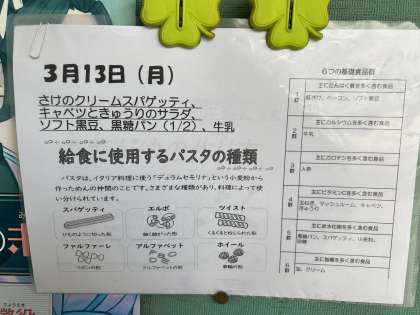 3月13日（月）
さけのクリームスパゲッティ、
キャベツときゅうりのサラダ、
ソフト黒豆、黒糖パン（1/2）、牛乳
給食に使用するパスタの種類
パスタは、イタリア料理に使う「デュラムセモリナ」という小麦粉から
作っためんの仲間のことです。さまざまな種類があり、料理によって使
い分けられています。
スパゲッティ
エルボ
ツイスト
ひものように切った形
くるくるとねじられた形
ファルファーレ
アルファベット
ホイール
リボンの形
アルファベットの形
車輪の形
6つの基礎食品群
1群
主にたんぱく質を多く含む食品
ベーコン、ソフト黒豆
2群
主にカルシウムを多く含む食品
牛乳
3群
主にカロテンを多く含む食品
人参
4群
主にビタミンCを多く含む食品
玉ねぎ、マッシュルーム、キャベツ、
きゅうり
5群
主に炭水化物を多く含む食品
黒糖パン、スパゲッティ、小麦粉、
6群
主に脂質を多く含む食品
油、クリーム